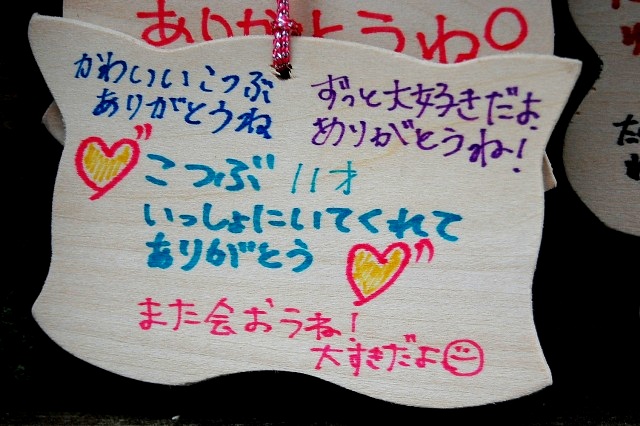 ありがとうね
かわいいこつぶ
ありがとうね
ずっと大好きだよ
ありがとうね!
こつぶ 11才
いっしょにいてくれて
ありがとう
また会おうね!
大すきだよ